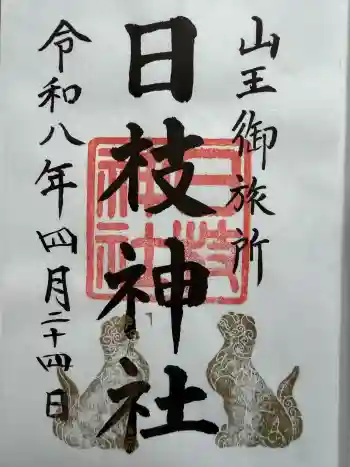 山王御旅所
日枝神社
日枝
神社
令和八年四月二十四日